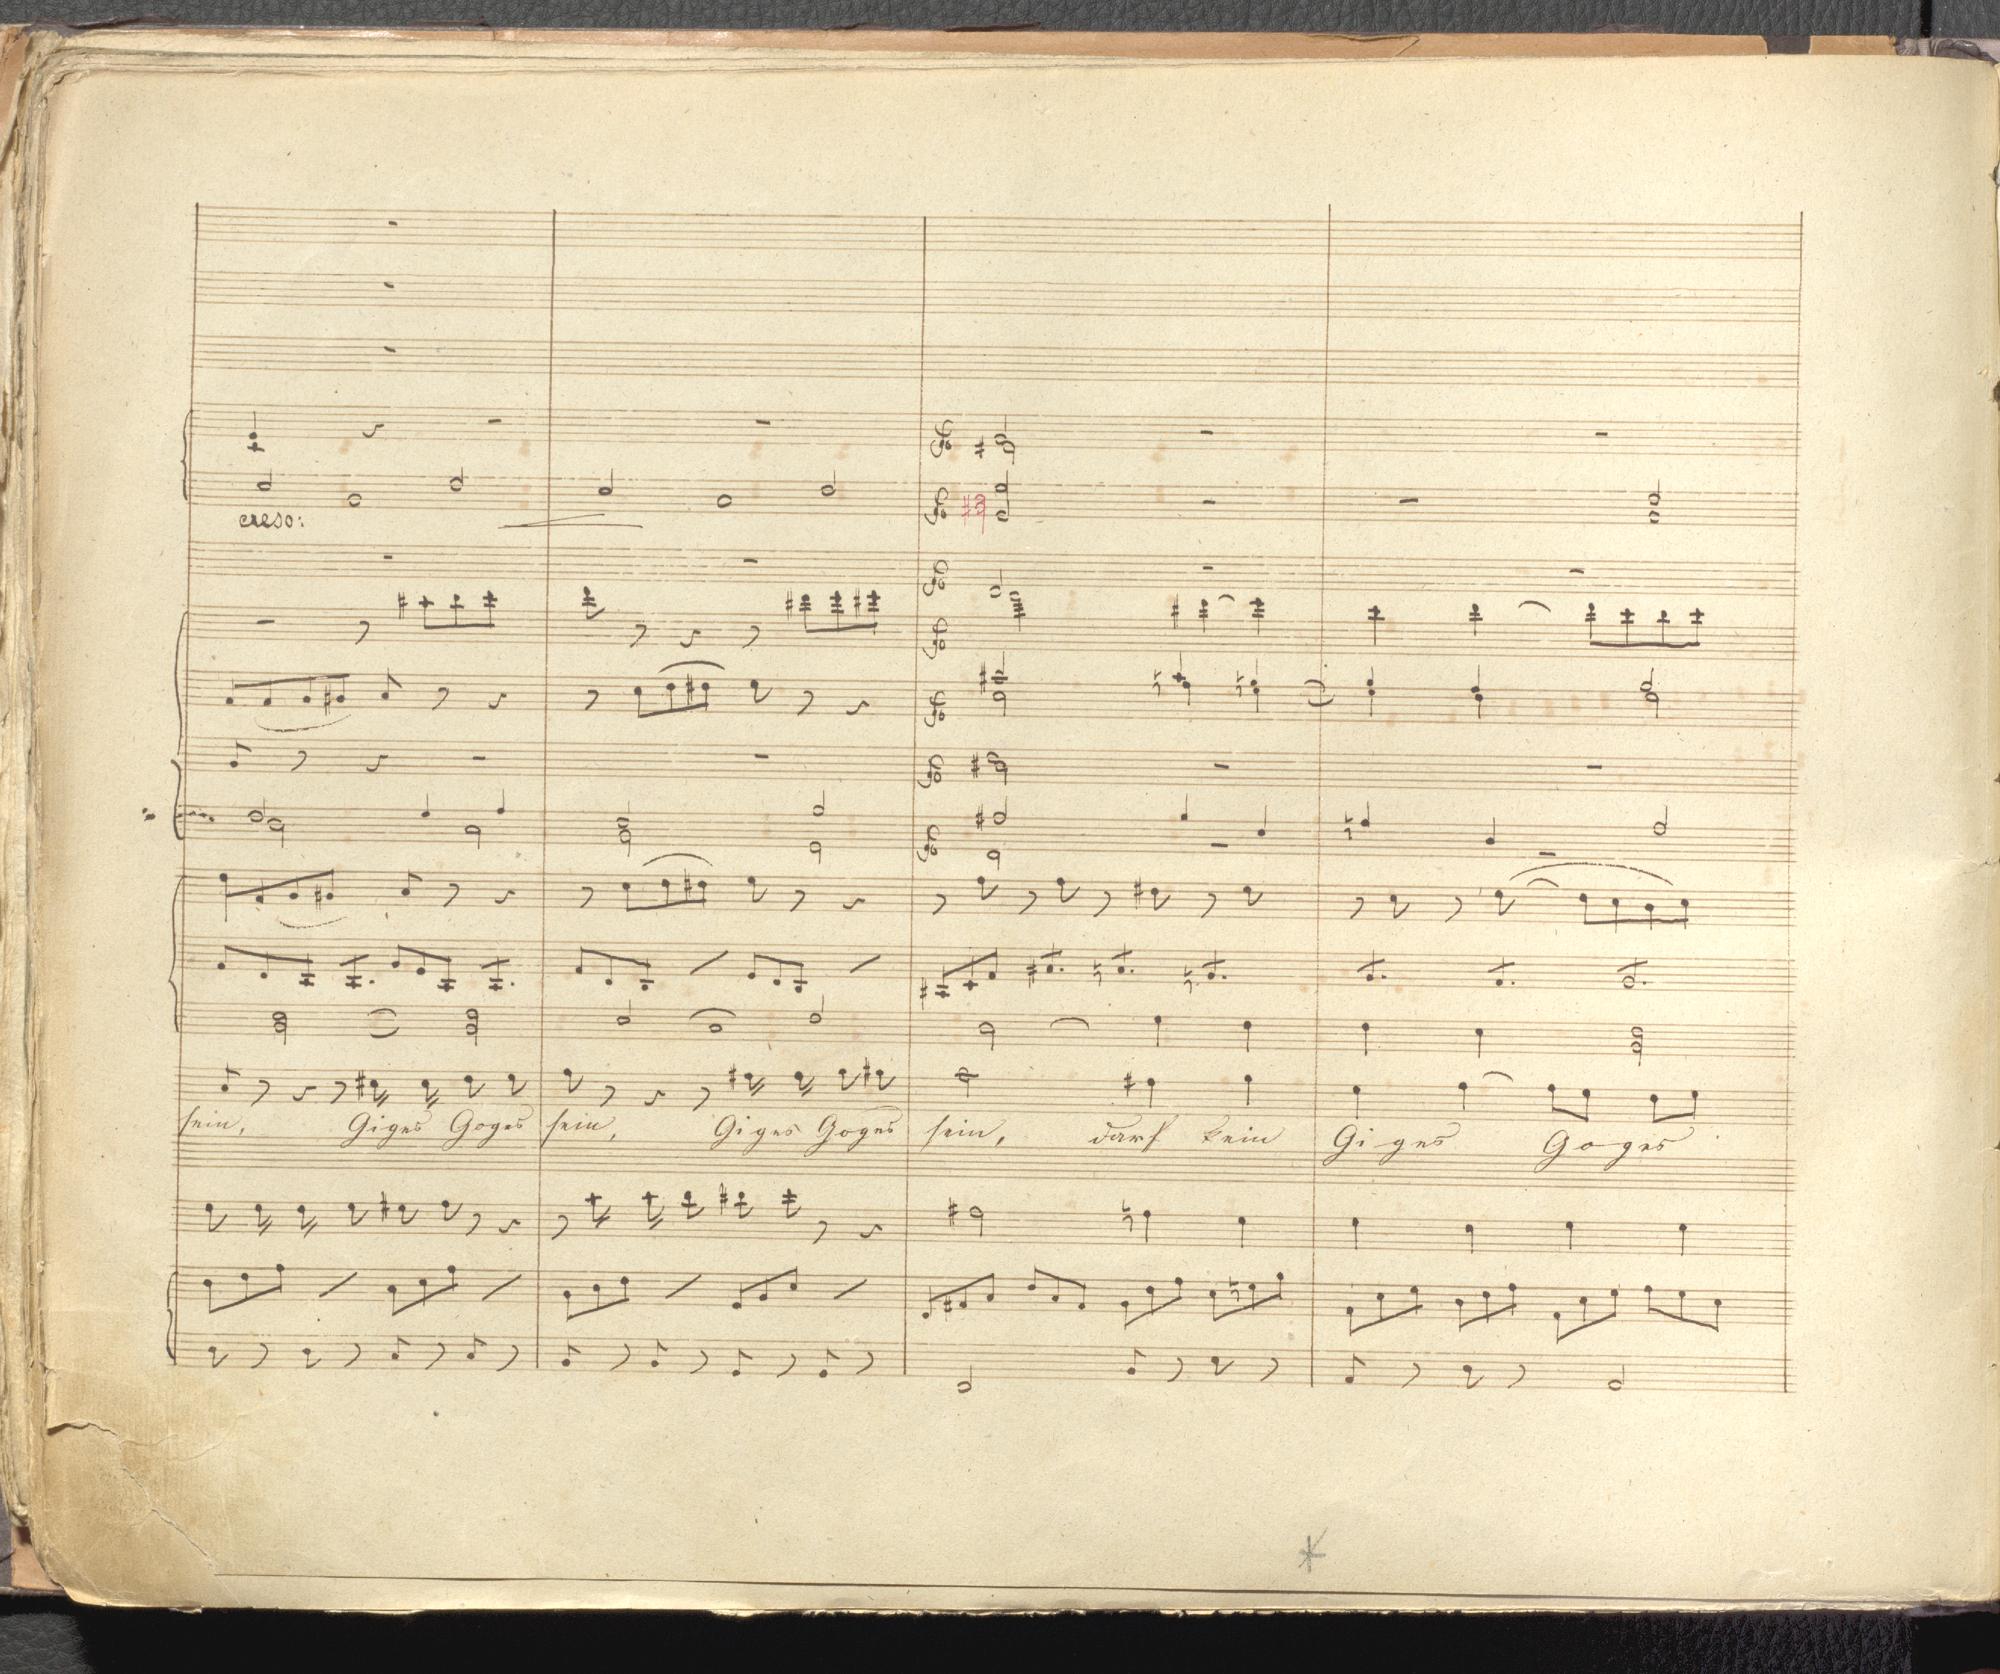 cresc:
sein, Giges Goges sein, Giges Goges sein, darf kein Gi-ges Goges